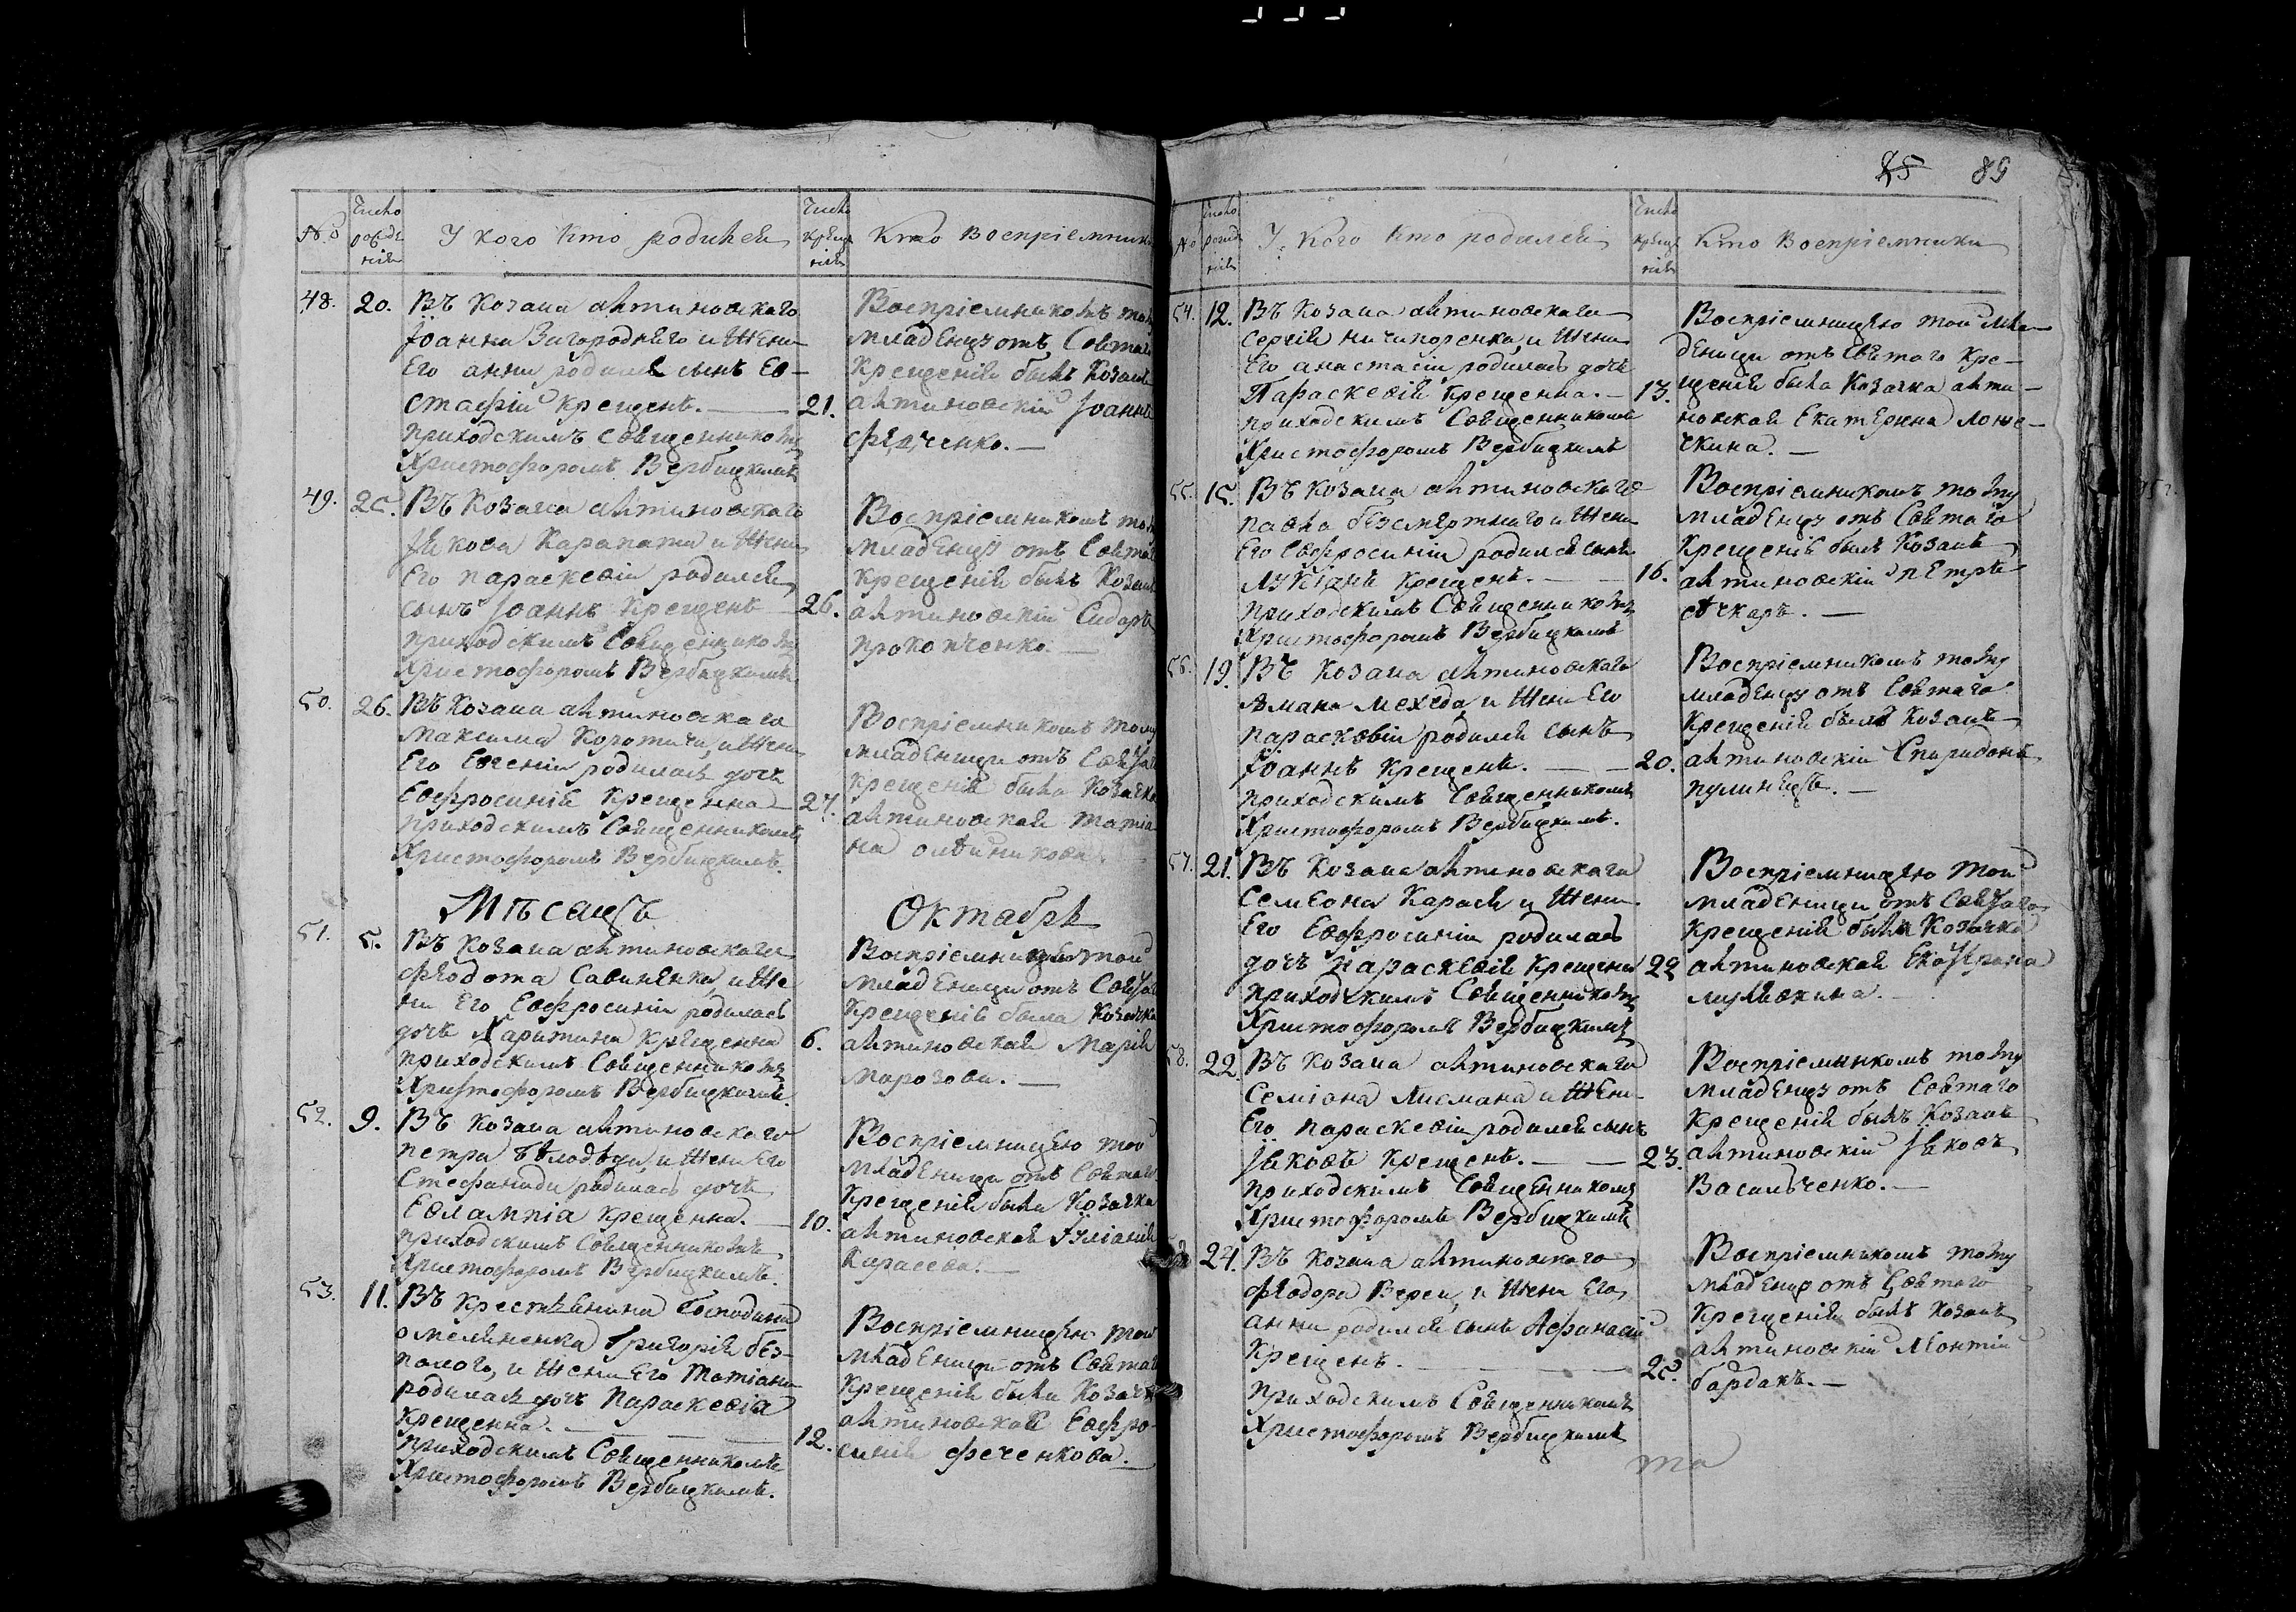 85 89
№ Число рожде нія У кого кто родился Число креще нія Кто Воспріемники
48. 20. Въ Козака Антиновскаго
Іоанна Загороднего и Жени
Его анни родился сынъ Ев-
стафій крещенъ. — 21.
приходскимъ Священникомъ
Христофоромъ Вербицкимъ
Воспріемникомъ
младенцу отъ
Крещенія былъ Козакъ
Антиновскій Іоаннъ
федченко. —
49. 25. Въ Козака Антиновскаго
Якова Карапати и Жени
Его параскевіи родился
сынъ Іоаннъ Крещенъ 26.
приходскимъ Священникомъ
Христофоромъ Вербицкимъ
Воспріемникомъ
младенцу отъ
крещенія былъ
антиновскій Сидоръ
прокопченко. —
50. 26. Въ Козака антиновскаго
Максима Коротича, и Жени
Его Евгеніи родилась дочь
Евфросинія Крещенна — 27.
приходскимъ Священникомъ
Христофоромъ Вербицкимъ.
младеницы отъ
крещенія была Козачка
антиновская Татіа
на
Мѣсацъ Октабрь
51. 5. Въ Козака антиновскаго
федота Савиненка, и Же
ни Его Евфросиніи родилась
дочь Харитина Крещенна 6.
приходскимъ Священникомъ
Христофоромъ Вербицкимъ.
Воспріемницею той
младеницы отъ
Крещенія была Козачка
антиновская Марія
Марозова. —
52. 9. Въ Козака антиновскаго
петра и Жени Его
Стефаниди родилась дочь
Евлампіа крещенна. — 10.
приходскимъ Священникомъ
Христофоромъ Вербицкимъ.
Воспріемницею той
младеници отъ
Крещенія была Козачка
антиновская Іуліанія
Карасева. —
53. 11. Въ Крестянина Господина
омеляненка Григорія без-
палого, и Жени Его Татіани
родилась дочь Параскевіа
крещенна. — 12.
приходскимъ Священникомъ
Христофоромъ Вербицкимъ.
Воспріемницею той
младеници отъ
Крещенія была
антиновская Евфро-
синія феченкова. —
№ Число рожде нія У Кого кто родился Число креще нія Кто Воспріемники
54. 12. Въ Козака антиновскаго
Сергія ничипоренка, и Жени
Его анастасіи родилась дочь
Параскевія Крещенна. — 13.
приходскимъ Священникомъ
Христофоромъ Вербицкимъ
Воспріемницею той мла
деници отъ Святаго Кре-
щенія была Козачка анти-
новская Екатерина
55. 15. Въ Козака антиновскаго
павла безсмертнаго и Жени
Его Евфросиніи родился сынъ
Лукіанъ Крещенъ. — 16.
приходскимъ Священникомъ
Христофоромъ Вербицкимъ
Воспріемникомъ тому
младенцу отъ Святаго
Крещенія былъ Козакъ
антиновскій Петръ
56. 19. Въ Козака антиновскаго
Мехеда, и Жени Его
парасковіи родился сынъ
Іоаннъ Крещенъ. — 20.
приходскимъ Священникомъ
Христофоромъ Вербицкимъ.
Воспріемникомъ тому
младенцу отъ Святаго
Крещенія былъ Козакъ
антиновскій Спиридонъ
пулинецъ. —
57. 21. Въ Козака антиновскаго
Семеона Карася и Жени
Его Евфросиніи родилась
дочь Параскевія Крещена 22
приходскимъ Священникомъ
Христофоромъ Вербицкимъ
Воспріемницею той
младеници отъ Святаго
крещенія была Козачка
антиновская Екатерина
58. 22. Въ Козака антиновскаго
Семіона Лисмана и Жени
Его параскевіи родился сынъ
Іяковъ Крещенъ. — 23.
приходскимъ Священникомъ
Христофоромъ Вербицкимъ
Воспріемникомъ тому
младенцу отъ Святаго
Крещенія былъ Козакъ
антиновскій Іяковъ
Васильченко. —
24. Въ Козака антиновскаго
федора Вереи, и Жени Его
анни родился сынъ Афанасій
Крещенъ. — 25.
приходскимъ Священникомъ
Христофоромъ Вербицкимъ
Воспріемникомъ тому
младенцу отъ Святаго
Крещенія былъ Козакъ
антиновскій Леонтій
бардакъ. —
та